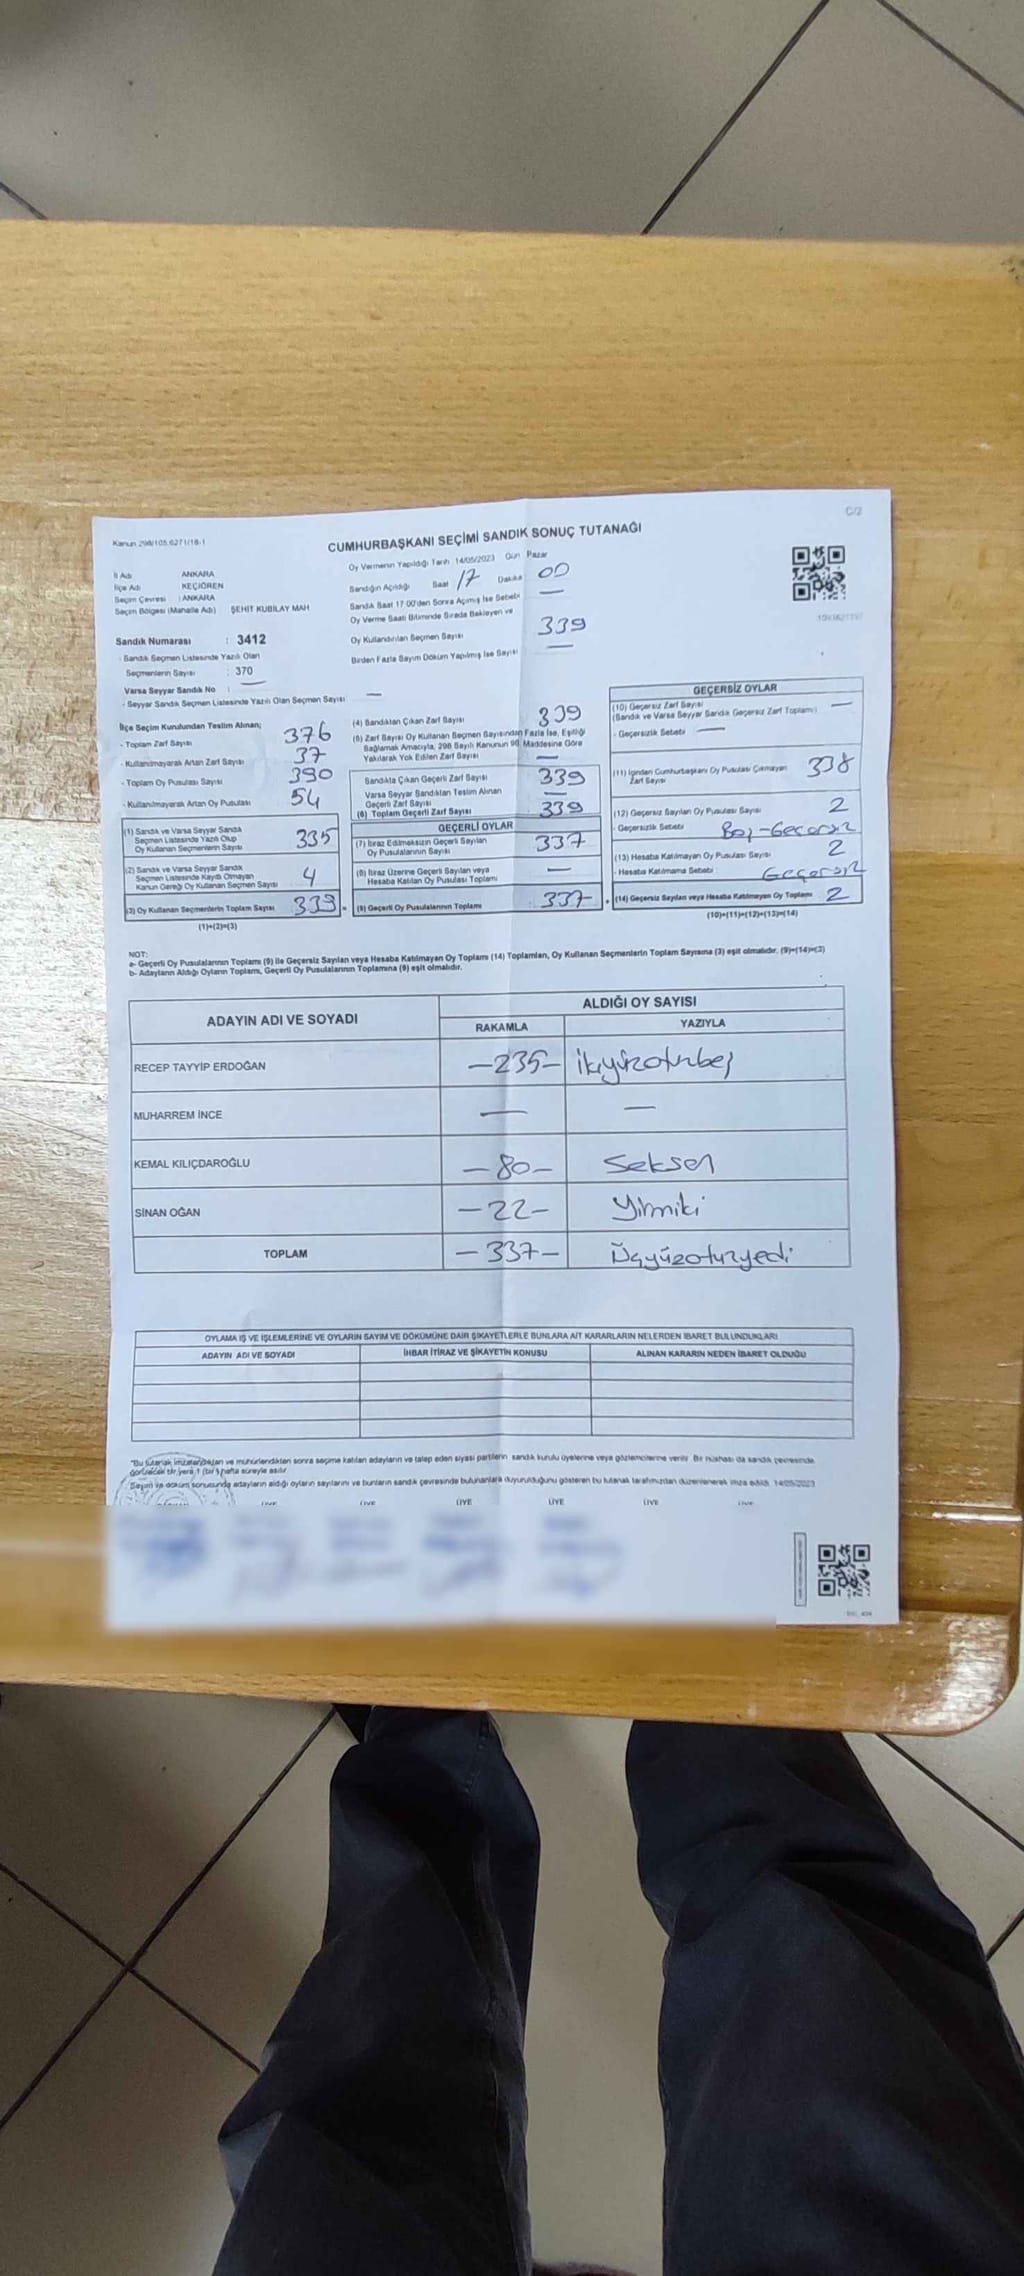 Kanun 298/105,6271/18-1
C/2
CUMHURBAŞKANI SEÇİMİ SANDIK SONUÇ TUTANAĞI
İl Adı : ANKARA
İlçe Adı : KEÇİÖREN
Seçim Çevresi : ANKARA
Seçim Bölgesi (Mahalle Adı) ŞEHİT KUBİLAY MAH
Sandık Numarası : 3412
- Sandık Seçmen Listesinde Yazılı Olan
Seçmenlerin Sayısı : 370
Varsa Seyyar Sandık No : —
- Seyyar Sandık Seçmen Listesinde Yazılı Olan Seçmen Sayısı —
Oy Vermenin Yapıldığı Tarih 14/05/2023 Gün Pazar
Sandığın Açıldığı Saat 17 Dakika 00
Sandık Saat 17:00'den Sonra Açılmış İse Sebebi —
Oy Verme Saati Bitiminde Sırada Bekleyen ve
Oy Kullandırılan Seçmen Sayısı 339
Birden Fazla Sayım Döküm Yapılmış İse Sayısı —
İlçe Seçim Kurulundan Teslim Alınan;
- Toplam Zarf Sayısı 376
- Kullanılmayarak Artan Zarf Sayısı 37
- Toplam Oy Pusulası Sayısı 390
- Kullanılmayarak Artan Oy Pusulası 54
(1) Sandık ve Varsa Seyyar Sandık
Seçmen Listesinde Yazılı Olup
Oy Kullanan Seçmenlerin Sayısı 335
(2) Sandık ve Varsa Seyyar Sandık
Seçmen Listesinde Kayıtlı Olmayan
Kanun Gereği Oy Kullanan Seçmen Sayısı 4
(3) Oy Kullanan Seçmenlerin Toplam Sayısı 339 =
(1)+(2)=(3)
(4) Sandıktan Çıkan Zarf Sayısı 339
(5) Zarf Sayısı Oy Kullanan Seçmen Sayısından Fazla İse, Eşitliği
Sağlamak Amacıyla, 298 Sayılı Kanunun 98. Maddesine Göre
Yakılarak Yok Edilen Zarf Sayısı —
Sandıkta Çıkan Geçerli Zarf Sayısı 339
Varsa Seyyar Sandıktan Teslim Alınan
Geçerli Zarf Sayısı —
(6) Toplam Geçerli Zarf Sayısı 339
GEÇERLİ OYLAR
(7) İtiraz Edilmeksizin Geçerli Sayılan
Oy Pusulalarının Sayısı 337
(8) İtiraz Üzerine Geçerli Sayılan veya
Hesaba Katılan Oy Pusulası Toplamı —
(9) Geçerli Oy Pusulalarının Toplamı 337 +
GEÇERSİZ OYLAR
(10) Geçersiz Zarf Sayısı —
(Sandık ve Varsa Seyyar Sandık Geçersiz Zarf Toplamı)
- Geçersizlik Sebebi —
(11) İçinden Cumhurbaşkanı Oy Pusulası Çıkmayan
Zarf Sayısı 338
(12) Geçersiz Sayılan Oy Pusulası Sayısı 2
- Geçersizlik Sebebi Boş-Geçersiz
(13) Hesaba Katılmayan Oy Pusulası Sayısı 2
- Hesaba Katılmama Sebebi : Geçersiz
(14) Geçersiz Sayılan veya Hesaba Katılmayan Oy Toplamı 2
(10)+(11)+(12)+(13)=(14)
NOT:
a- Geçerli Oy Pusulalarının Toplamı (9) ile Geçersiz Sayılan veya Hesaba Katılmayan Oy Toplamı (14) Toplamları, Oy Kullanan Seçmenlerin Toplam Sayısına (3) eşit olmalıdır. (9)+(14)=(3)
b- Adayların Aldığı Oyların Toplamı, Geçerli Oy Pusulalarının Toplamına (9) eşit olmalıdır.
ADAYIN ADI VE SOYADI
ALDIĞI OY SAYISI
RAKAMLA YAZIYLA
RECEP TAYYİP ERDOĞAN —235— İkiyüzotuzbeş
MUHARREM İNCE — —
KEMAL KILIÇDAROĞLU —80— Seksen
SİNAN OĞAN —22— Yirmiki
TOPLAM —337— Üçyüzotuzyedi
OYLAMA İŞ VE İŞLEMLERİNE VE OYLARIN SAYIM VE DÖKÜMÜNE DAİR ŞİKAYETLERLE BUNLARA AİT KARARLARIN NELERDEN İBARET BULUNDUKLARI
ADAYIN ADI VE SOYADI İHBAR İTİRAZ VE ŞİKAYETİN KONUSU ALINAN KARARIN NEDEN İBARET OLDUĞU
"Bu tutanak imzalandıktan ve mühürlendikten sonra seçime katılan adayların ve talep eden siyasi partilerin sandık kurulu üyelerine veya gözlemcilerine verilir. Bir nüshası da sandık çevresinde
görülecek bir yere 1 (bir) hafta süreyle asılır.
Sayım ve döküm sonucunda adayların aldığı oyların sayılarını ve bunların sandık çevresinde bulunanlara duyurulduğunu gösteren bu tutanak tarafımızdan düzenlenerek imza edildi. 14/05/2023
ÜYE ÜYE ÜYE ÜYE ÜYE ÜYE